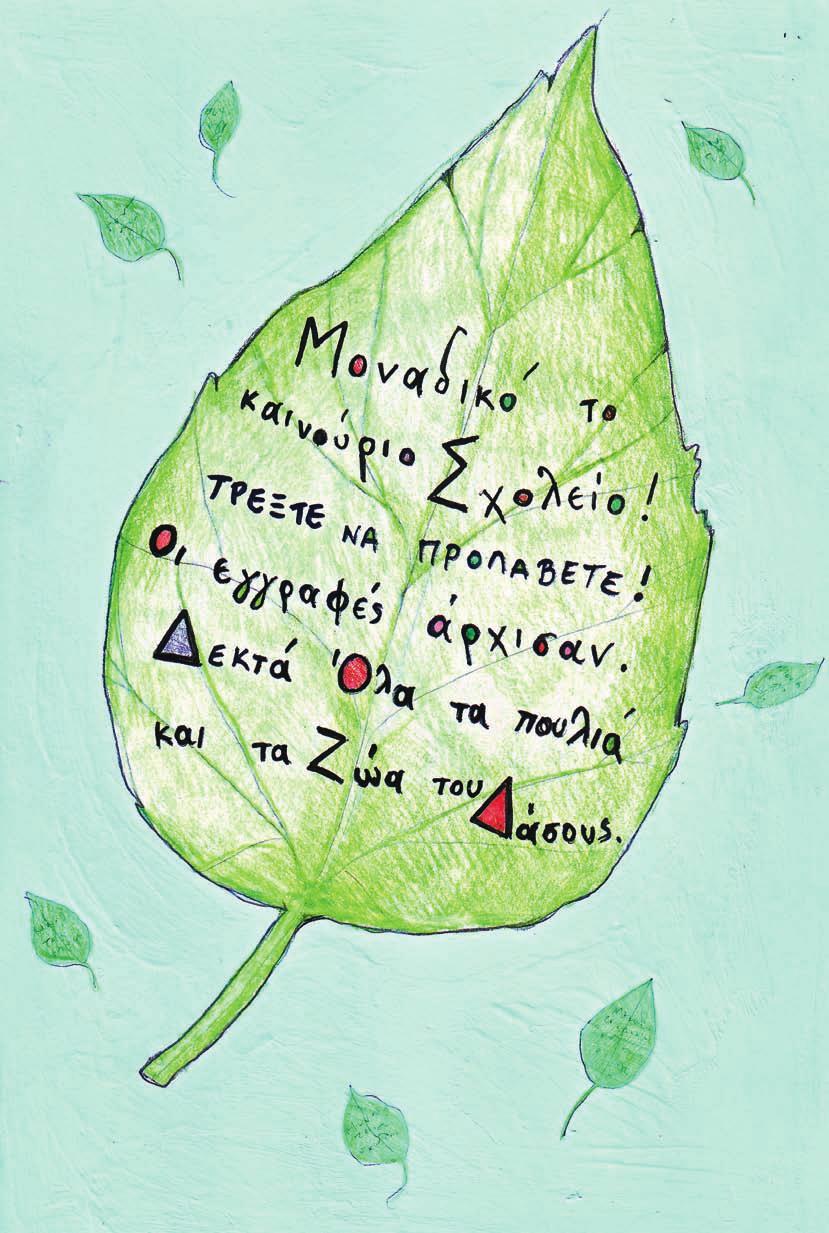 Μοναδικό το
καινούριο Σχολείο!
ΤΡΕΞΤΕ ΝΑ ΠΡΟΛΑΒΕΤΕ!
Οι εγγραφές άρχισαν.
Δεκτά Όλα τα πουλιά
και τα Ζώα του Δάσους.